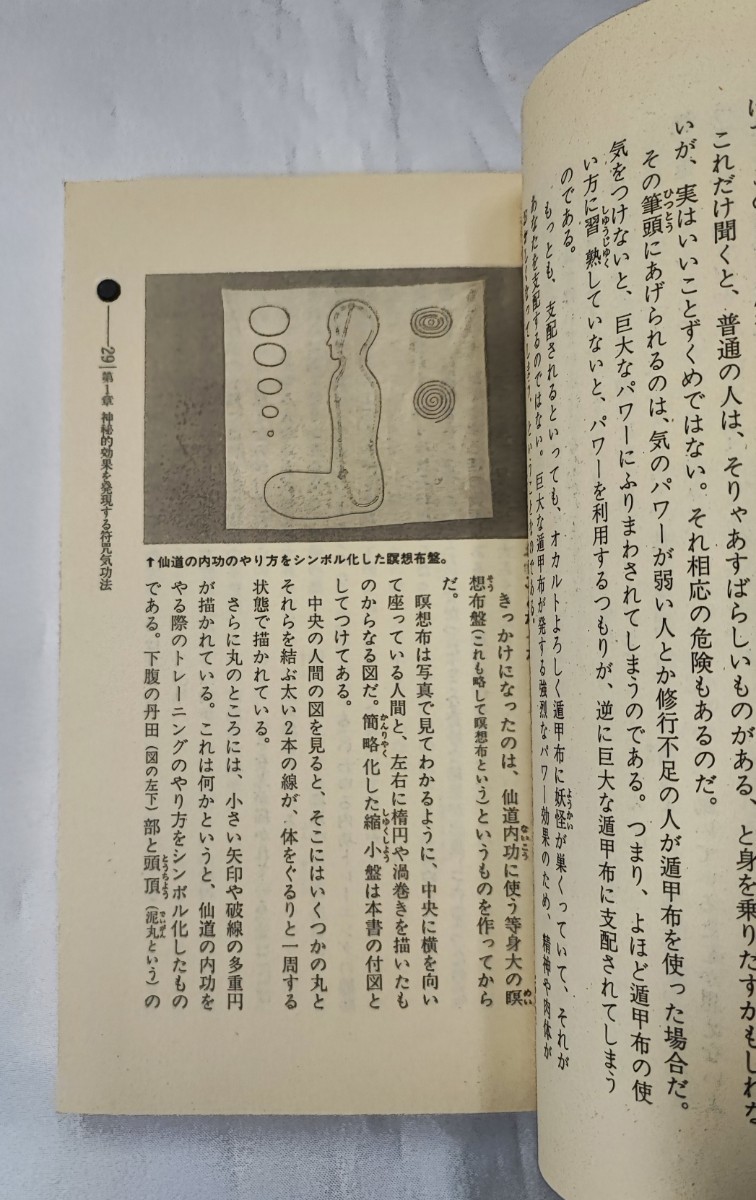 これだけ聞くと、普通の人は、そりゃあすばらしいものがある、と身を乗りだすかもしれな
いが、実はいいことずくめではない。それ相応の危険もあるのだ。
その筆頭にあげられるのは、気のパワーが弱い人とか修行不足の人が遁甲布を使った場合だ。
ひっとう
気をつけないと、巨大なパワーにふりまわされてしまうのである。つまり、よほど遁甲布の使
い方に習熟していないと、パワーを利用するつもりが、逆に巨大な遁甲布に支配されてしまう
しゅうじゅく
のである。
もっとも、支配されるといっても、オカルトよろしく遁甲布に妖怪が巣くっていて、それが
ようかい
あなたを支配するのではない。巨大な遁甲布が発する強烈なパワー効果のため、精神や肉体が
きっかけになったのは、仙道内功に使う等身大の瞑
ないこう
めい
想布盤(これも略して瞑想布という)というものを作ってから
そう
だ。
瞑想布は写真で見てわかるように、中央に横を向い
て座っている人間と、左右に楕円や渦巻きを描いたも
のからなる図だ。簡略化した縮小盤は本書の付図と
かんりゃく
しゅくしょう
してつけてある。
中央の人間の図を見ると、そこにはいくつかの丸と
それらを結ぶ太い2本の線が、体をぐるりと一周する
状態で描かれている。
さらに丸のところには、小さい矢印や破線の多重円
が描かれている。これは何かというと、仙道の内功を
やる際のトレーニングのやり方をシンボル化したもの
である。下腹の丹田(図の左下)部と頭頂(泥丸という)の
とうちょう
でいがん
↑仙道の内功のやり方をシンボル化した瞑想布盤。
29 第1章 神秘的効果を発現する符咒気功法